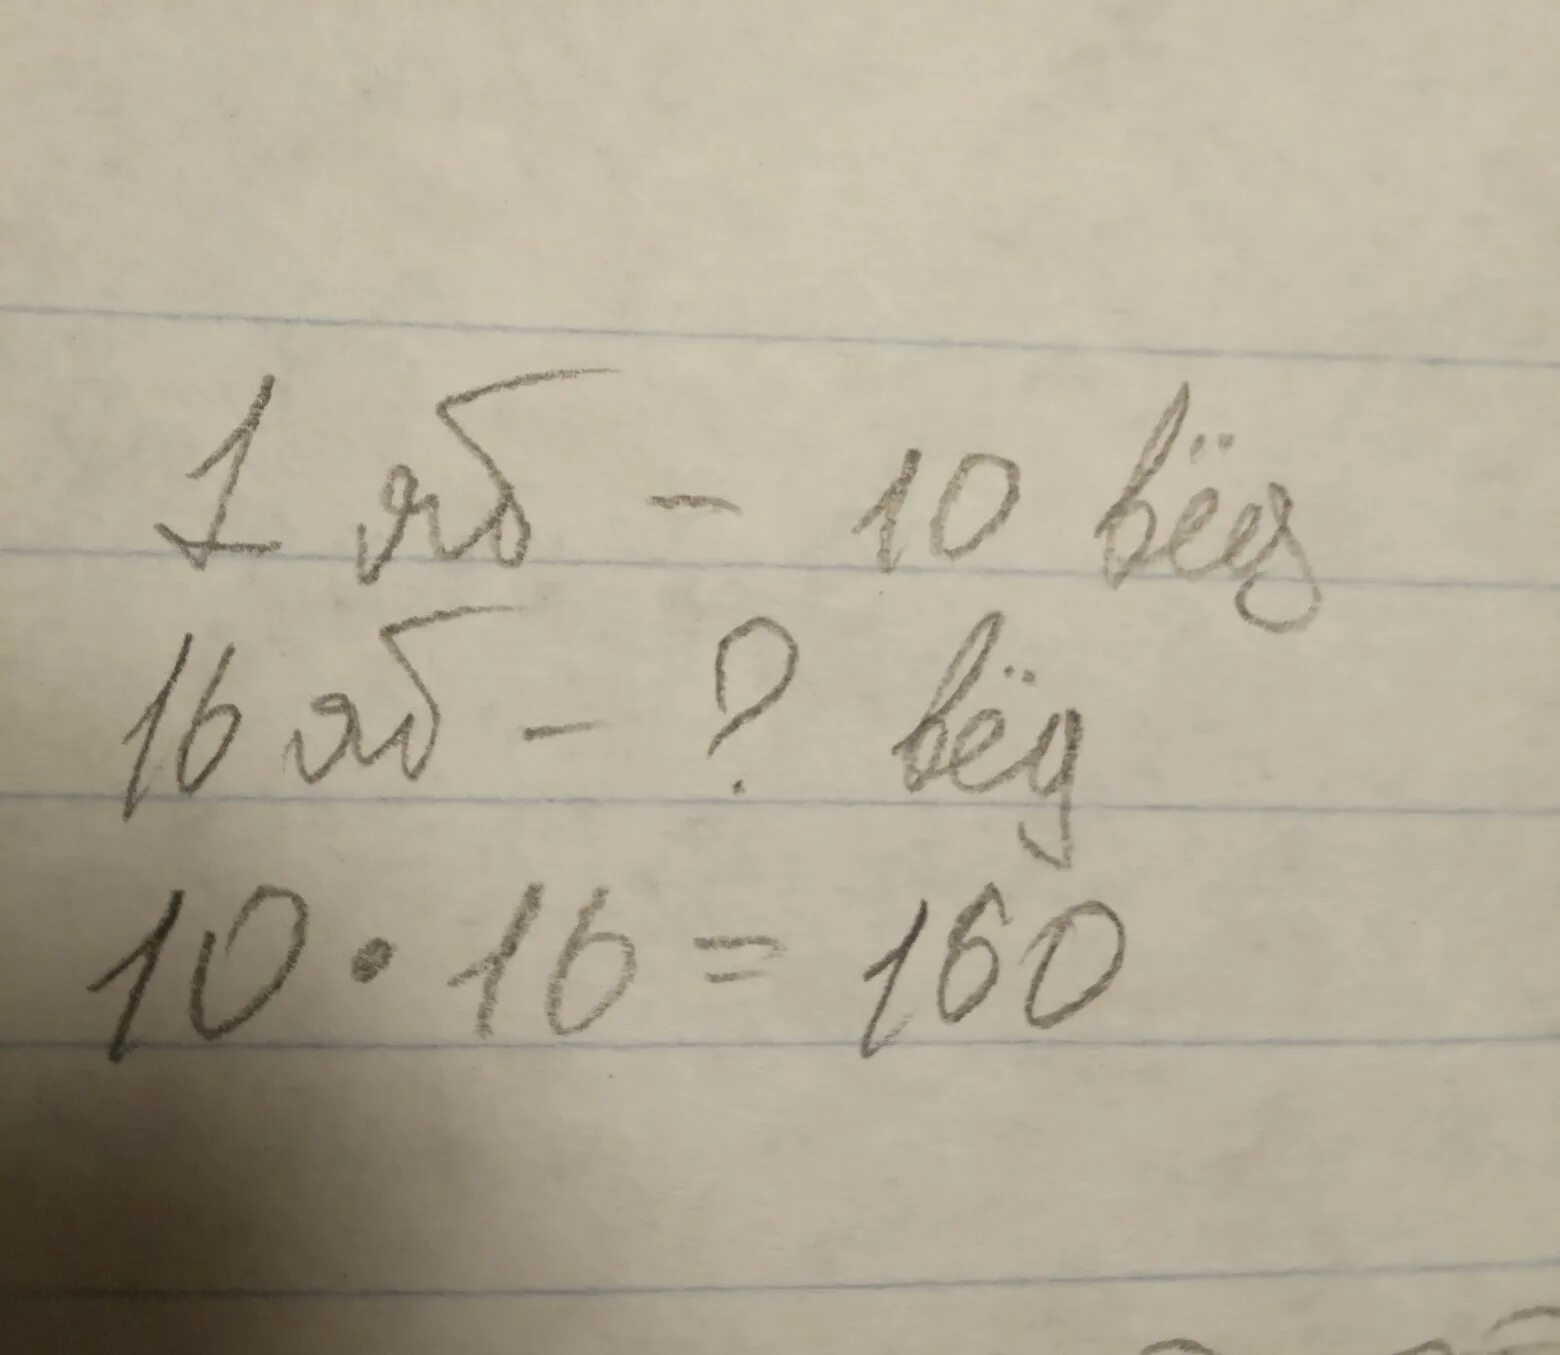 1 яб - 10 вёд
16 яб - ? вёд
10 · 16 = 160